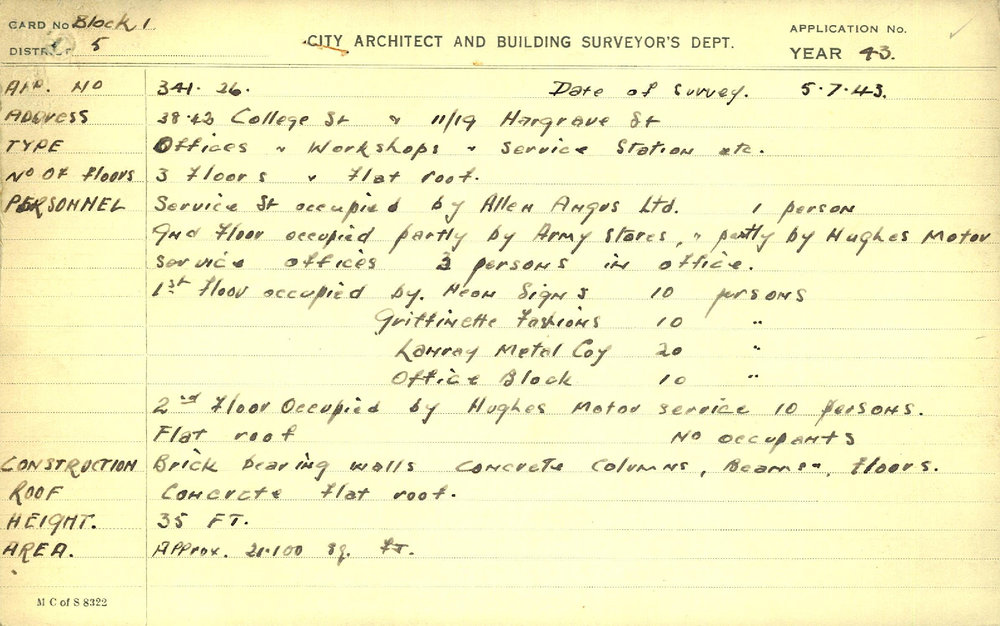 CARD No Block 1
DISTRICT 5
CITY ARCHITECT AND BUILDING SURVEYOR'S DEPT.
APPLICATION No.
YEAR 43.
App. No 341. 26. Date of Survey. 5.7.43.
ADDRESS 38.42 College St & 11/19 Hargrave St
TYPE Offices & Workshops & Service Station etc.
No OF Floors 3 Floors & Flat roof.
PERSONNEL Service St occupied by Allen Angus Ltd. 1 person
Gnd Floor occupied partly by Army Stores, & partly by Hughes Motor
Service offices 3 persons in office.
1st Floor occupied by. Neon Signs 10 persons
Griffinette Fashions 10 "
Lanray Metal Coy 20 "
Office Block 10 "
2nd Floor Occupied by Hughes Motor service 10 persons.
Flat roof No occupants
CONSTRUCTION Brick bearing walls Concrete Columns, Beams &, Floors.
ROOF Concrete Flat roof.
HEIGHT. 35 FT.
AREA. Approx. 21.100 sq. ft.
M C of S 8322